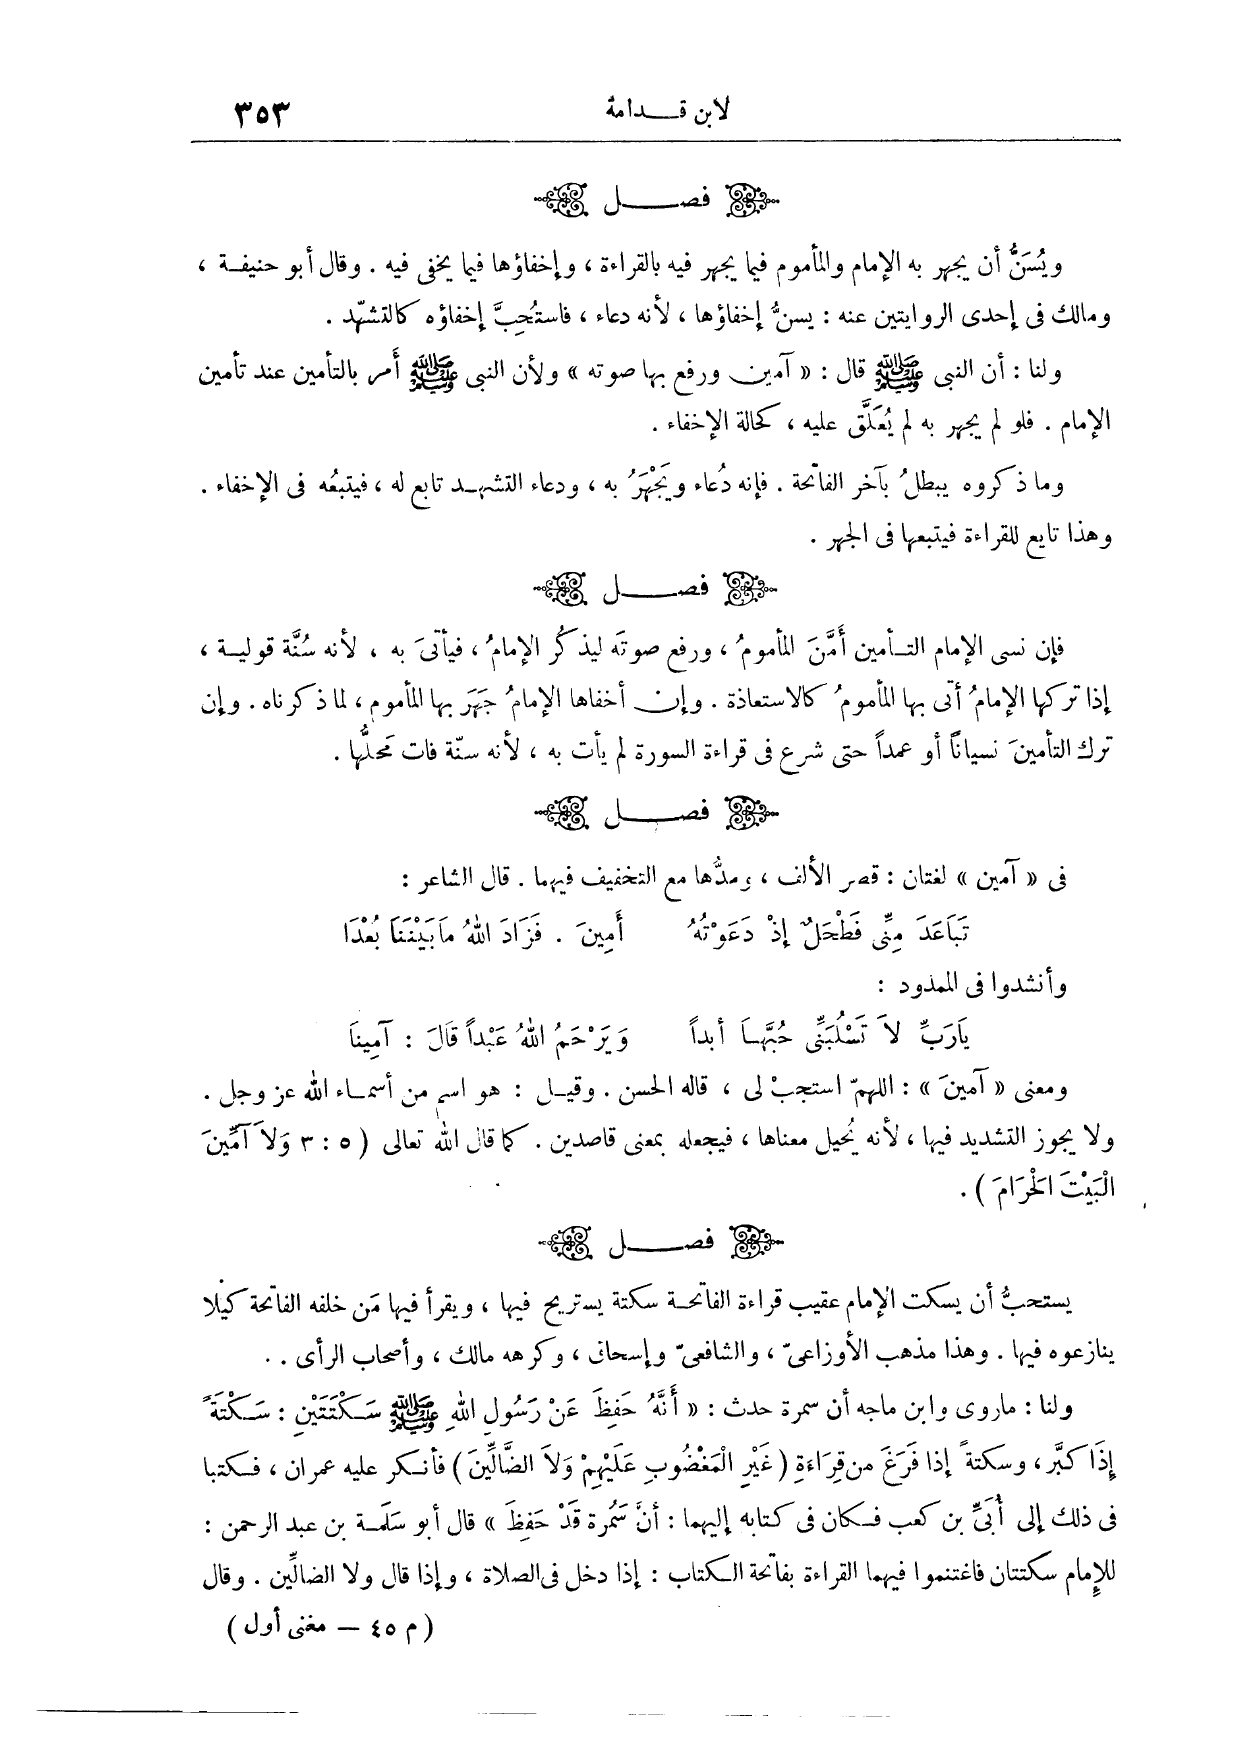 لابن قدامة ٣٥٣
فصل
ويُسَنُّ أن يجهر به الإمام والمأموم فيما يجهر فيه بالقراءة ، وإخفاؤها فيما يخفى فيه . وقال أبو حنيفة ،
ومالك فى إحدى الروايتين عنه : يسنُّ إخفاؤها ، لأنه دعاء ، فاستُحِبَّ إخفاؤه كالتشهّد .
ولنا : أن النبى ﷺ قال : « آمين ورفع بها صوته » ولأن النبى ﷺ أَمر بالتأمين عند تأمين
الإمام . فلو لم يجهر به لم يُعَلَّق عليه ، كحالة الإخفاء .
وما ذكروه يبطلُ بآخر الفاتحة . فإنه دُعاء ويَجْهَرُ به ، ودعاء التشهد تابع له ، فيتبعُه فى الإخفاء .
وهذا تابع للقراءة فيتبعها فى الجهر .
فصل
فإن نسى الإمام التأمين أَمَّنَ المأمومُ ، ورفع صوتَه ليذكُر الإمامُ ، فيأتىَ به ، لأنه سُنَّة قولية ،
إذا تركها الإمامُ أتى بها المأمومُ كالاستعاذة . وإن أخفاها الإمامُ جَهَرَ بها المأموم ، لما ذكرناه . وإن
ترك التأمينَ نسياناً أو عمداً حتى شرع فى قراءة السورة لم يأت به ، لأنه سنّة فات مَحلُّها .
فصل
فى « آمين » لغتان : قصر الألف ، ومدُّها مع التخفيف فيهما . قال الشاعر :
تَبَاعَدَ مِنِّى فَطْحَلٌ إذْ دَعَوْتهُ أَمِينَ . فَزَادَ اللهُ مَابَيْنَنَا بُعْدَا
وأنشدوا فى الممدود :
يَارَبِّ لاَ تَسْلُبَنِّى حُبَّهَا أبداً وَيَرْحَمُ اللهُ عَبْداً قَالَ : آمِينَا
ومعنى « آمينَ » : اللهمّ استجبْ لى ، قاله الحسن . وقيل : هو اسم من أسماء الله عز وجل .
ولا يجوز التشديد فيها ، لأنه يُحيل معناها ، فيجعله بمعنى قاصدين . كما قال الله تعالى ( ٥ : ٣ وَلاَ آمِّينَ
الْبَيْتَ الْحَرَامَ ) .
فصل
يستحبُّ أن يسكت الإمام عقيب قراءة الفاتحة سكتة يستريح فيها ، ويقرأ فيها مَن خلفه الفاتحة كيلا
ينازعوه فيها . وهذا مذهب الأوزاعىّ ، والشافعىّ وإسحاق ، وكرهه مالك ، وأصحاب الرأى . .
ولنا : ماروى وابن ماجه أن سمرة حدث : « أَنَّهُ حَفِظَ عَنْ رَسُولِ اللهِ ﷺ سَكْتَتَيْنِ : سَكْتَةً
إذَا كَبَّر ، وسكتةً إذا فَرَغَ من قِرَاءَةِ ( غَيْرِ الْمَغْضُوبِ عَلَيْهِمْ وَلاَ الضَّالِّينَ ) فأنكر عليه عمران ، فكتبا
فى ذلك إلى أُبَىِّ بن كعب فكان فى كتابه إليهما : أنَّ سَمُرة قَدْ حَفِظَ » قال أبو سَلَمَة بن عبد الرحمن :
للإِمام سكتتان فاغتنموا فيهما القراءة بفاتحة الكتاب : إذا دخل فى الصلاة ، وإذا قال ولا الضالِّين . وقال
( م ٤٥ — مغنى أول )